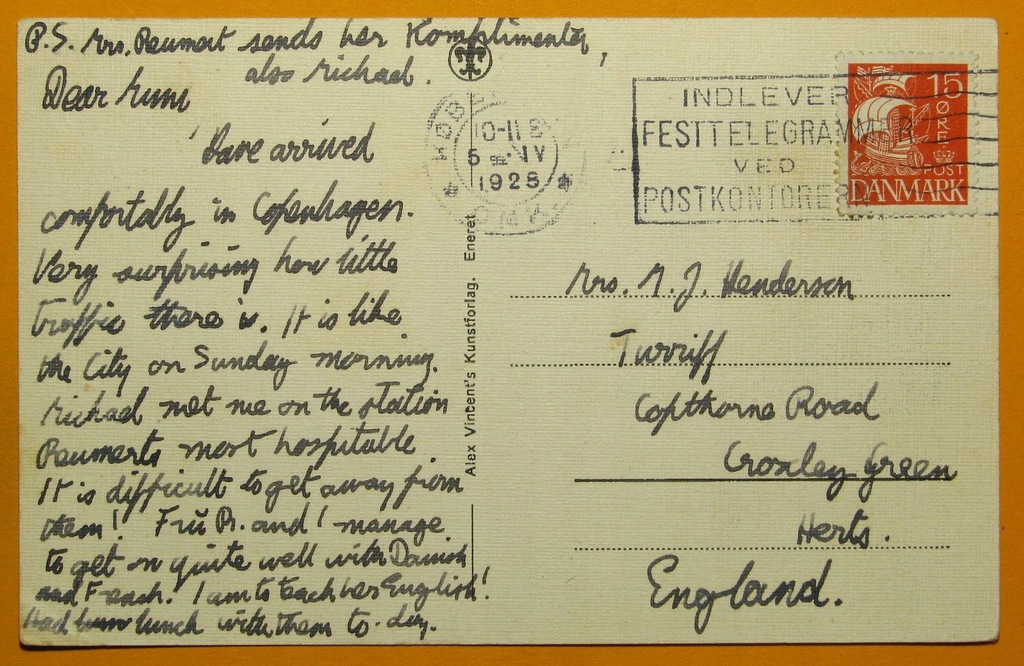 P.S. Mrs. Reumert sends her Komplimenter,
also Richard.
Dear Mum
I have arrived
comfortably in Copenhagen.
Very surprising how little
traffic there is. It is like
the City on Sunday morning.
Richard met me on the station
Reumerts most hospitable
It is difficult to get away from
them! Frü R. and I manage
to get on quite well with Danish
and French. I am to teach her English!
Had lunch with them to-day.
Alex Vincent's Kunstforlag. Eneret.
10-11
5 IV
1928
INDLEVER
FESTTELEGRAMMER
VED
POSTKONTORER
15
ØRE
POST
DANMARK
Mrs. M. J. Henderson
Turriff
Copthorne Road
Croxley Green
Herts.
England.